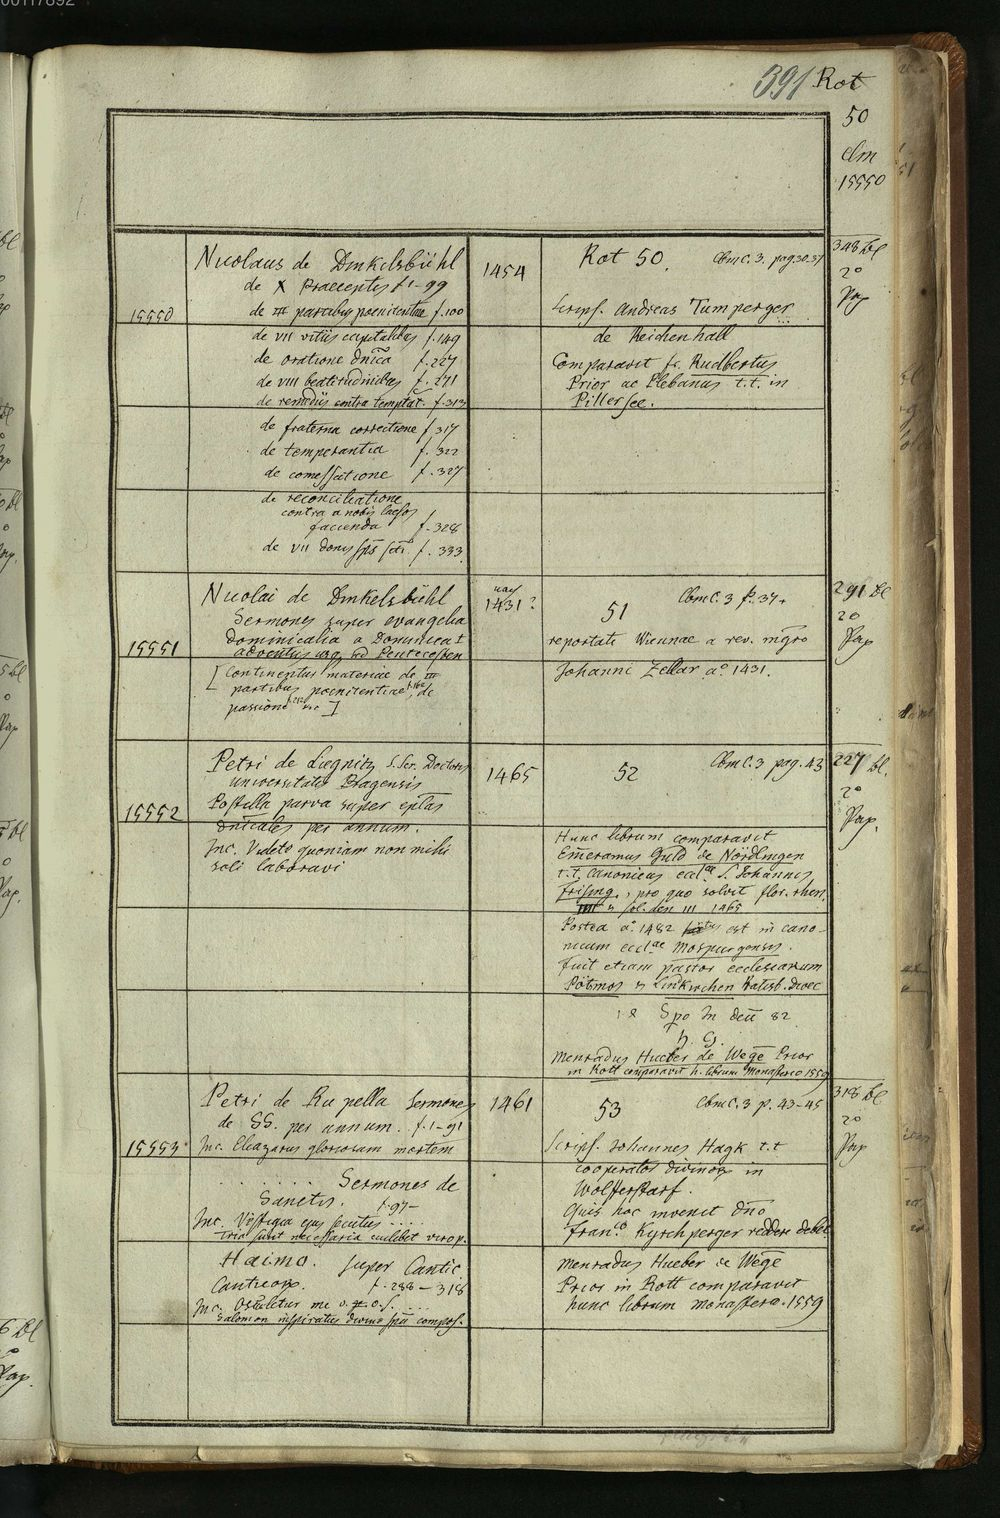 00117892
391 Rot
50
clm
15550
15550
Nicolaus de Dinkelsbühl
de X Praeceptis f. 1–99
de III partibus poenitentiae f. 100
de VII vitiis capitalibus f. 149
de oratione dnica f. 227
de VIII beatitudinibus f. 271
de remediis contra temptat. f. 313
de fraterna correctione f. 317
de temperantia f. 322
de comessatione f. 327
de reconciliatione
contra a nobis laesos
facienda f. 328
de VII donis sps sti f. 333
1454
Rot 50. Cbm C. 3. pag. 30.37
Scrips. Andreas Tumperger
de Reichenhall
Comparavit fr. Rudbertus
Prior ac Plebanus t.t. in
Pillersee.
348 bl
2°
Pap
15551
Nicolai de Dinkelsbühl
Sermones super evangelia
Dominicalia a Dominica I
adventus usq. ad Pentecosten
[Continentur materiae de III
partibus poenitentiae f. 162, de
passione f. 212 etc]
nach
1431?
51 Cbm C. 3 p. 37.
reportati Wiennae a rev. mgro
Johanni Zellar a° 1431.
291 bl
2°
Pap
15552
Petri de Liegnitz S. Scr. Doctoris
universitatis Pragensis
Postilla parva super eplas
dnicales per annum.
Inc. Videte quoniam non mihi
soli laboravi
1465
52 Cbm C. 3 pag. 43
Hunc librum comparavit
Emeramus Guld de Nördlingen
t.t. canonicus eccl. S. Johannis
Frising., pro quo solvit flor. rhen.
sol. den III 1465
Postea a° 1482 est in cano-
nicum eccl.ae Mospurgensis.
Fuit etiam pastor ecclesiarum
Pötmos et Linkirchen Ratisb. dioec
Spo In deu 82
h. G.
Menradus Hueber de Wege Prior
in Rott comparavit h. librum Monasterio 1559
227 bl.
2°
Pap.
15553
Petri de Rupella Sermones
de SS. per annum. f. 1–91
Inc. Eleazarus gloriosam mortem
. . . . . . Sermones de
Sanctis. f. 97–
Inc. Vestigia ejus secutus . . . . .
tria sunt necessaria cuilibet viro p.
Haimo. super Cantic
Canticor. f. 288–318
Inc. Osculetur me o. o. s. . . . .
Salomon inspiratus divino spu compos.
1461
53 Cbm C. 3 p. 43–45
Scrips. Johannes Hagk t.t
cooperator divinor. in
Wolfferstarf.
Quis hoc invenit dno
Franco Kyrchperger reddere debet
Menradus Hueber de Wege
Prior in Rott comparavit
hunc librum monasterio. 1559
318 bl
2°
Pap